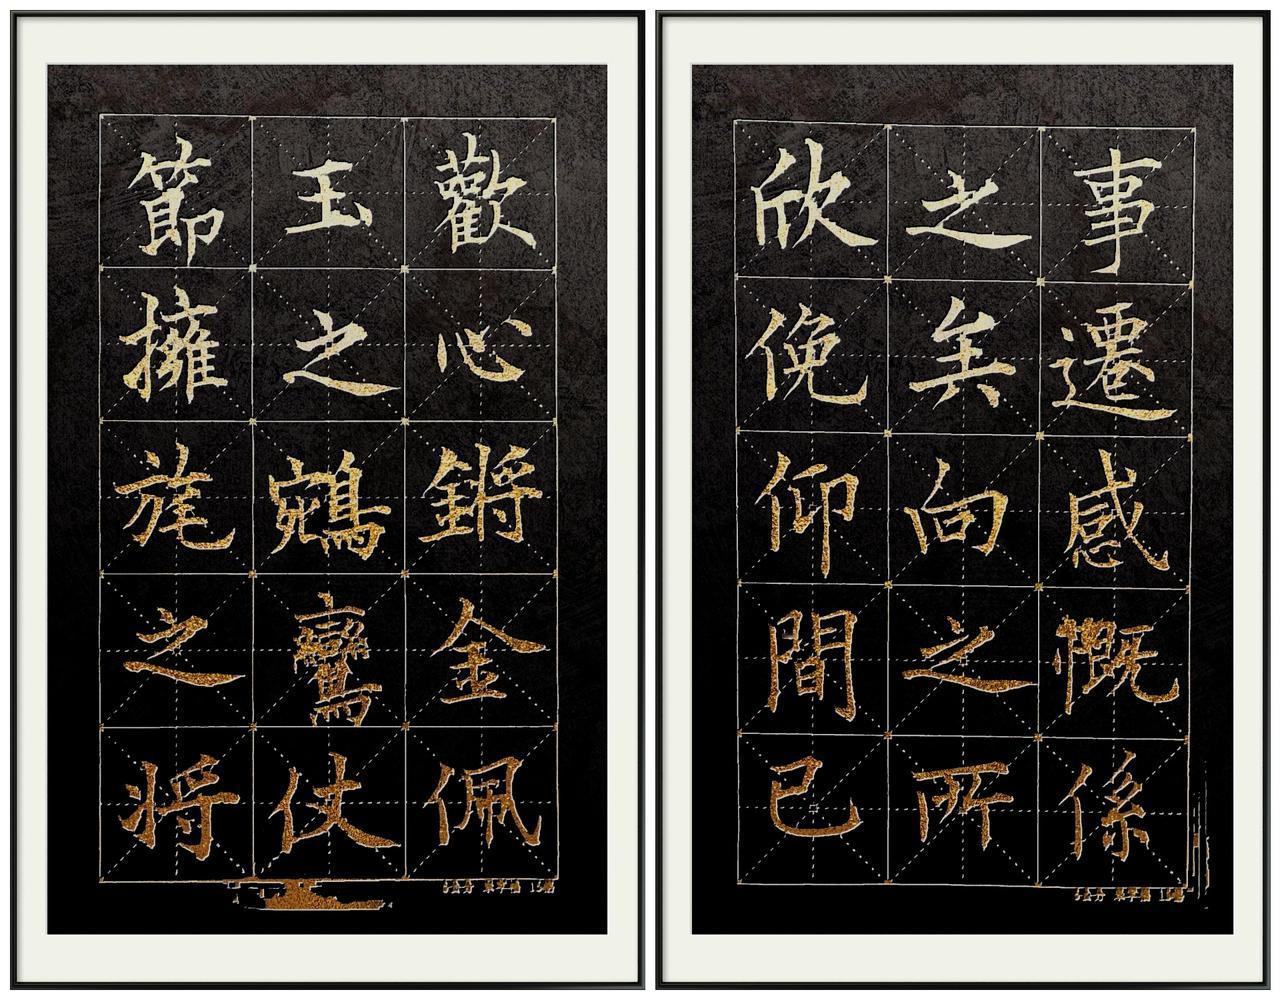 歡心鏘金佩
玉之鵷鸞仗
節擁旄之將
事遷感慨係
之矣向之所
欣俛仰間已